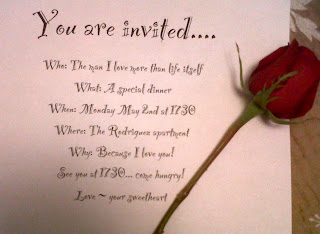 You are invited....
Who: The man I love more than life itself
What: A special dinner
When: Monday May 2nd at 1730
Where: The Rodriguez apartment
Why: Because I love you!
See you at 1730... come hungry!
Love ~ your sweetheart